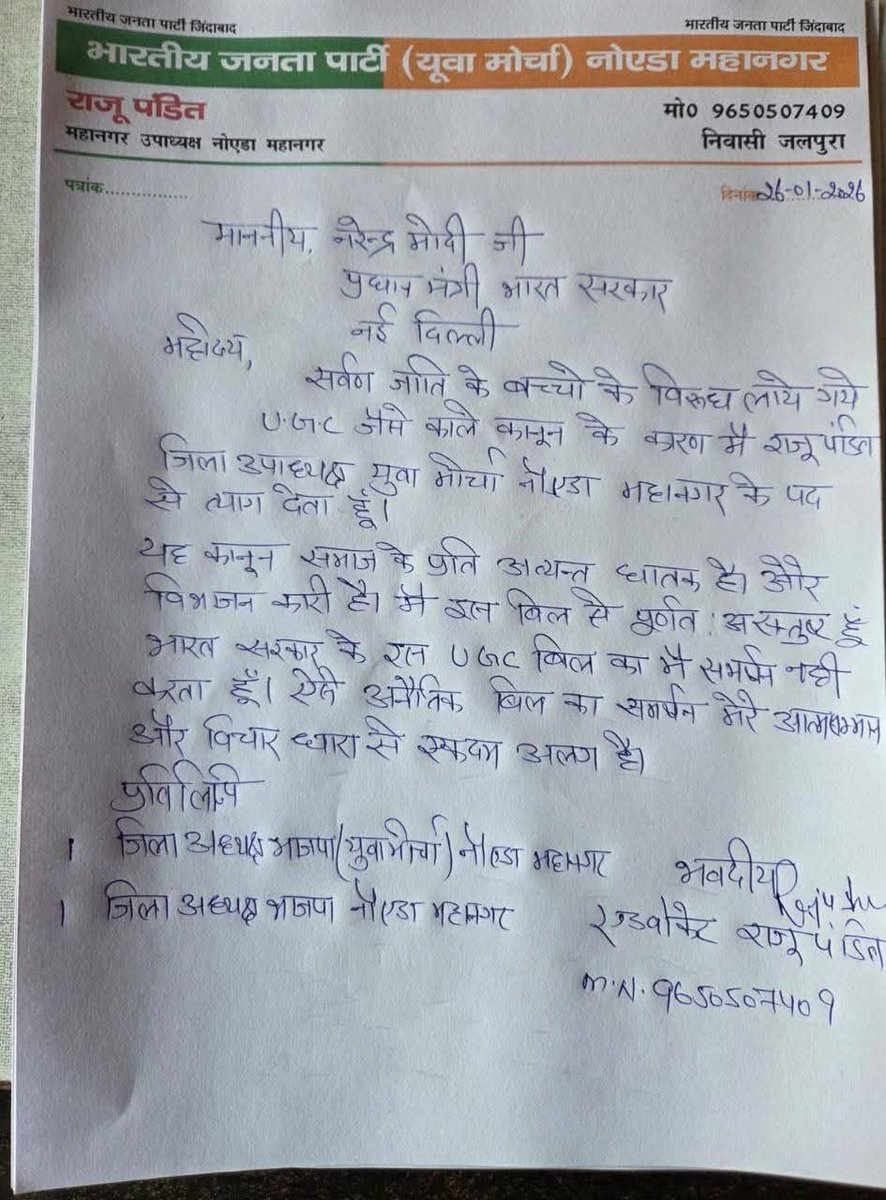 भारतीय जनता पार्टी जिंदाबाद भारतीय जनता पार्टी जिंदाबाद
भारतीय जनता पार्टी (यूवा मोर्चा) नोएडा महानगर
राजू पंडित मो0 9650507409
महानगर उपाध्यक्ष नोएडा महानगर निवासी जलपुरा
पत्रांक............... दिनांक 26-01-2026
माननीय, नरेन्द्र मोदी जी
प्रधान मंत्री भारत सरकार
नई दिल्ली
महोदय,
सर्वण जाति के बच्चो के विरूध लाये गये
U.G.C जैसे काले कानून के कारण मै राजू पंडित
जिला उपाध्यक्ष युवा मोर्चा नौएडा महानगर के पद
से त्याग देता हूँ।
यह कानून समाज के प्रति अत्यन्त घातक है। और
विभजन कारी है। मै इस बिल से पूर्णत: असन्तुष्ट हूँ
भारत सरकार के इस UGC बिल का मै समर्थन नही
करता हूँ। ऐसे अनैतिक बिल का समर्थन मेरे आत्मसम्मान
और विचार धारा से एकदम अलग है।
प्रतिलिपि
1 जिला अध्यक्ष भाजपा (युवा मोर्चा) नौएडा महानगर
1 जिला अध्यक्ष भाजपा नौएडा महानगर
भवदीय
एडवोकेट राजू पंडित
M.N. 9650507409